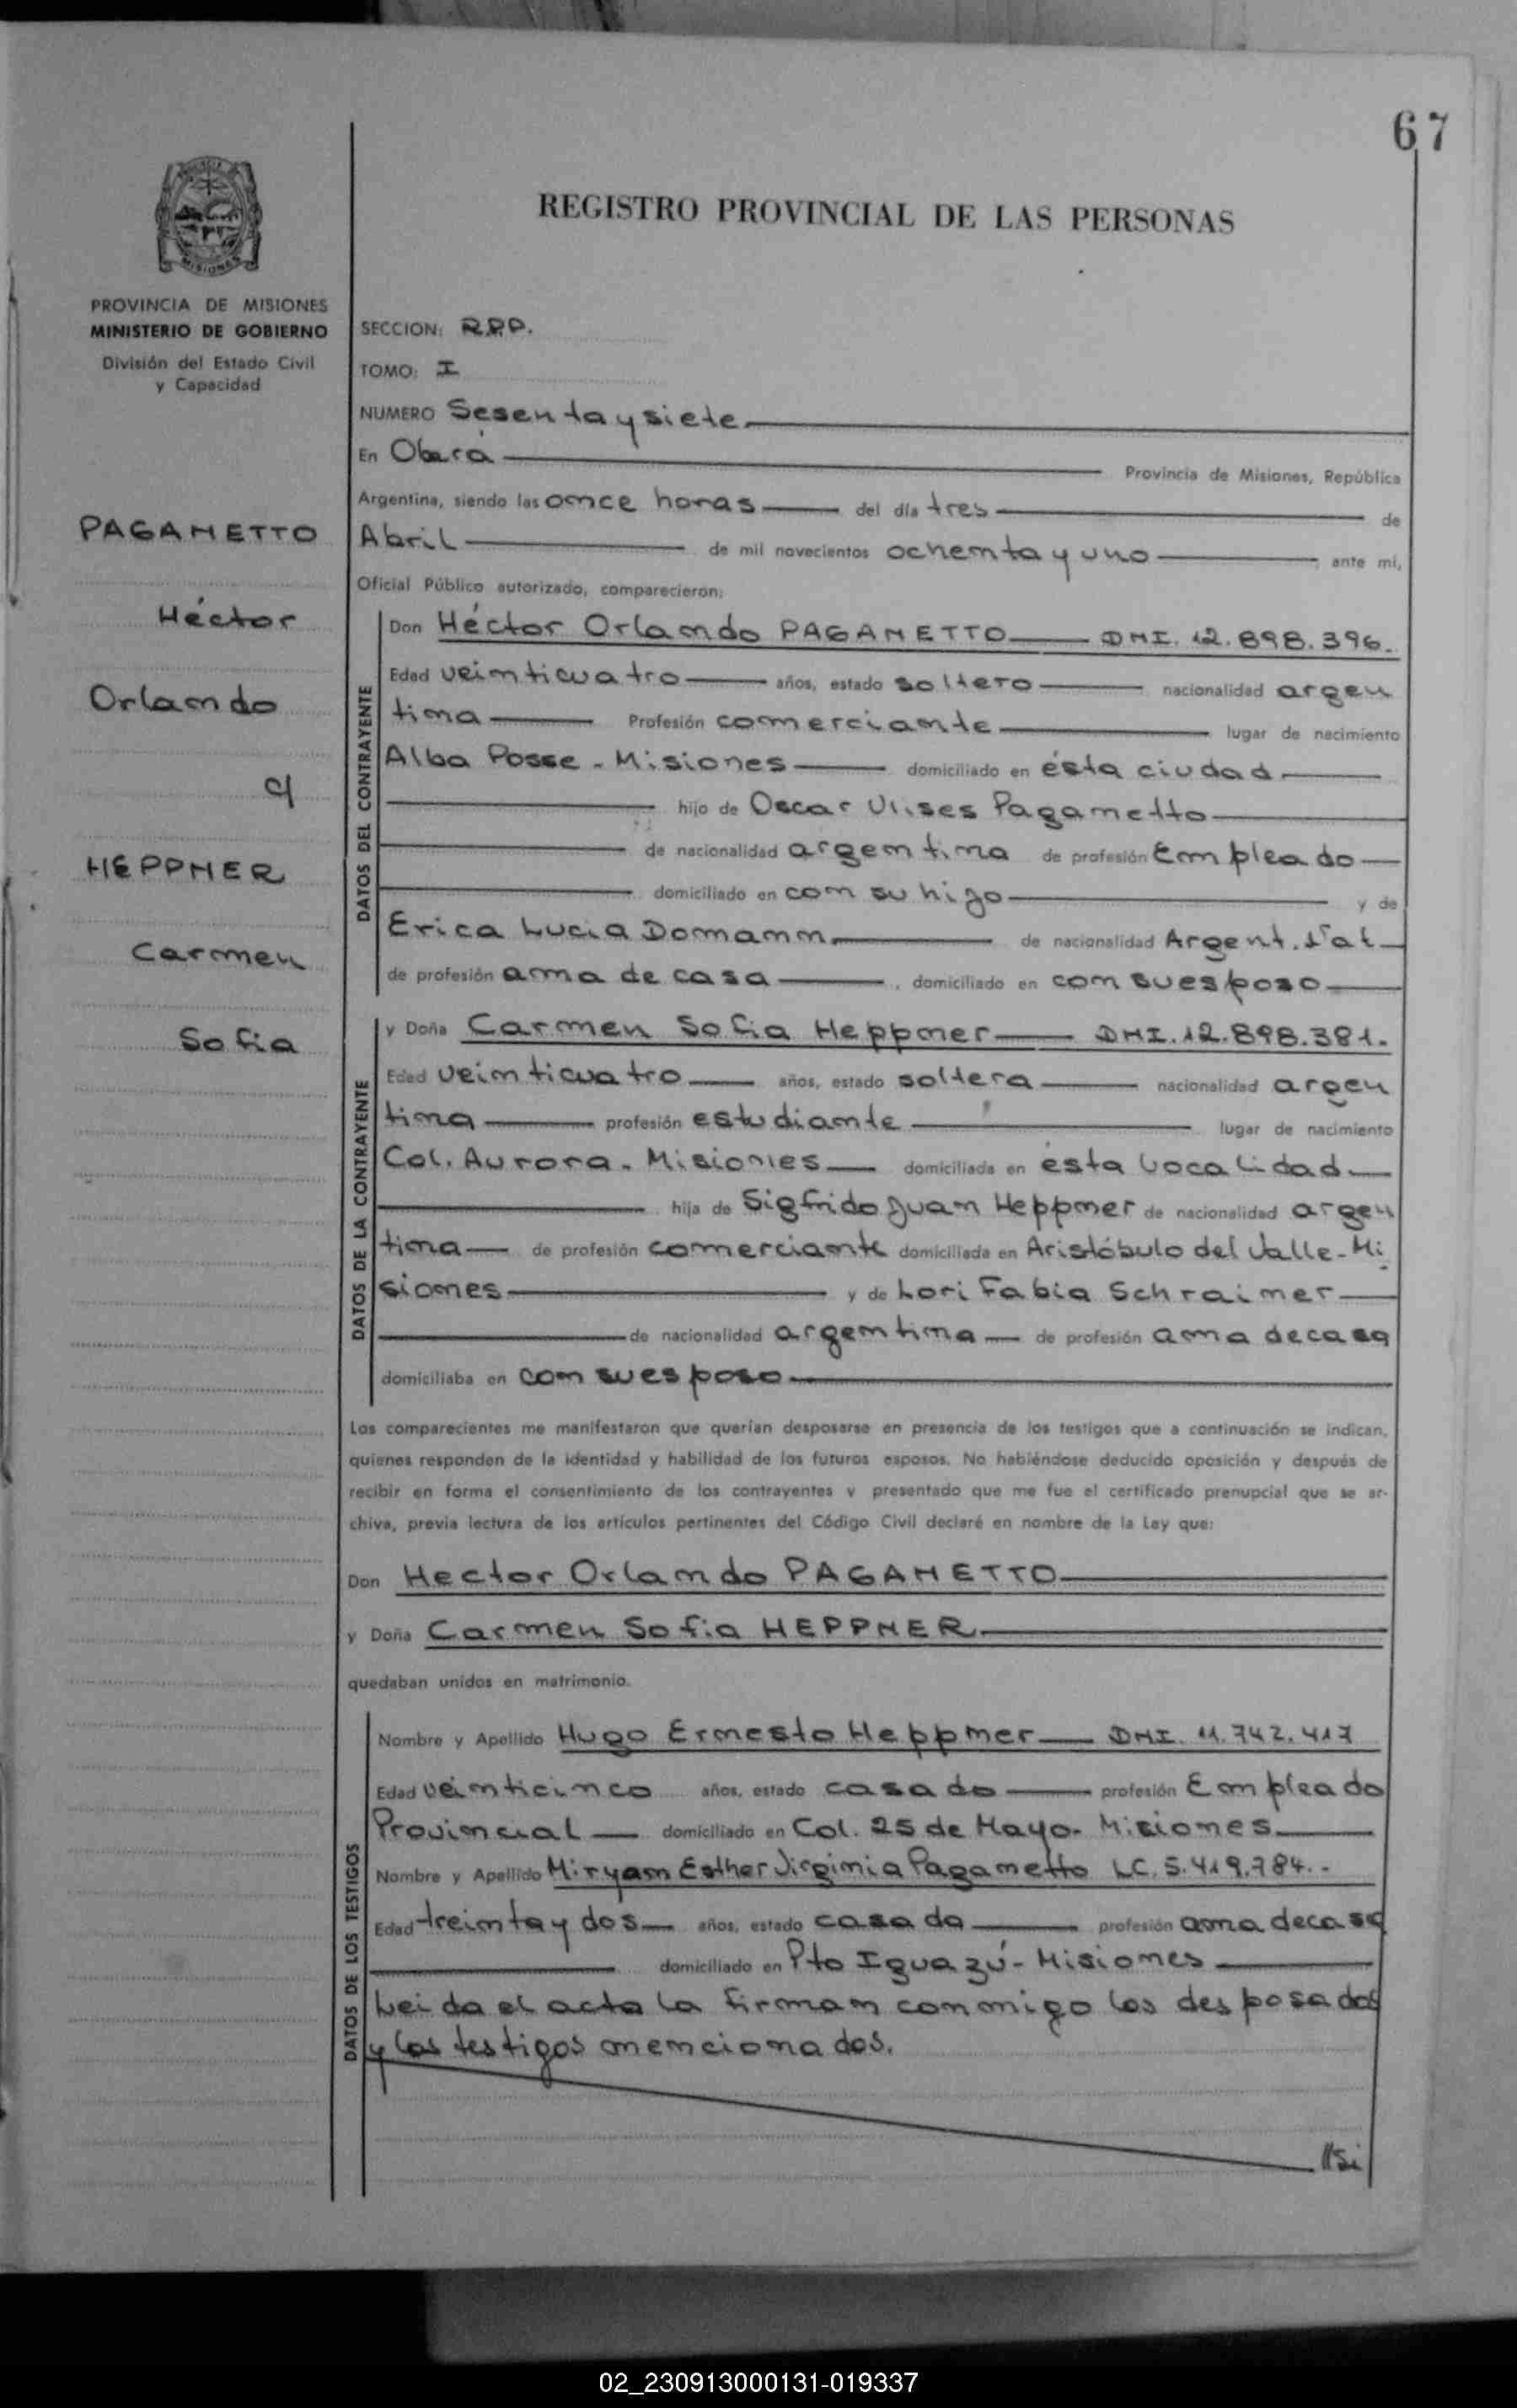 67
REGISTRO PROVINCIAL DE LAS PERSONAS
MISIONES
PROVINCIA DE MISIONES
MINISTERIO DE GOBIERNO
División del Estado Civil
y Capacidad
PAGANETTO
Héctor
Orlando
c/
HEPPNER
Carmen
Sofia
SECCION: R.P.P.
TOMO: I
NUMERO Sesenta y siete
En Oberá Provincia de Misiones, República
Argentina, siendo las once horas del día tres de
Abril de mil novecientos ochenta y uno ante mí,
Oficial Público autorizado, comparecieron:
DATOS DEL CONTRAYENTE
Don Héctor Orlando PAGANETTO DNI. 12.898.396.
Edad veinticuatro años, estado soltero nacionalidad argen
tina Profesión comerciante lugar de nacimiento
Alba Posse - Misiones domiciliado en ésta ciudad
hijo de Oscar Ulises Paganetto
de nacionalidad argentina de profesión Empleado
domiciliado en con su hijo y de
Erica Lucia Domann de nacionalidad Argent.
de profesión ama de casa, domiciliado en con su esposo
DATOS DE LA CONTRAYENTE
y Doña Carmen Sofia Heppner DNI. 12.898.381.
Edad veinticuatro años, estado soltera nacionalidad argen
tina profesión estudiante lugar de nacimiento
Col. Aurora. Misiones domiciliada en ésta localidad
hija de Sigfrido Juan Heppner de nacionalidad argen
tina de profesión comerciante domiciliada en Aristóbulo del Valle - Mi
siones y de Lori Fabia Schraimer
de nacionalidad argentina de profesión ama de casa
domiciliaba en con su esposo
Los comparecientes me manifestaron que querían desposarse en presencia de los testigos que a continuación se indican,
quienes responden de la identidad y habilidad de los futuros esposos. No habiéndose deducido oposición y después de
recibir en forma el consentimiento de los contrayentes y presentado que me fue el certificado prenupcial que se ar-
chiva, previa lectura de los artículos pertinentes del Código Civil declaré en nombre de la Ley que:
Don Hector Orlando PAGANETTO
y Doña Carmen Sofia HEPPNER
quedaban unidos en matrimonio.
DATOS DE LOS TESTIGOS
Nombre y Apellido Hugo Ernesto Heppner DNI. 11.742.417
Edad veinticinco años, estado casado profesión Empleado
Provincial domiciliado en Col. 25 de Mayo - Misiones
Nombre y Apellido Miryam Esther Virginia Paganetto LC. 5.419.784.-
Edad treinta y dos años, estado casada profesión ama de casa
domiciliado en Pto Iguazú - Misiones
Leida el acta la firman conmigo los desposados
y los testigos mencionados.
//si
02_230913000131-019337